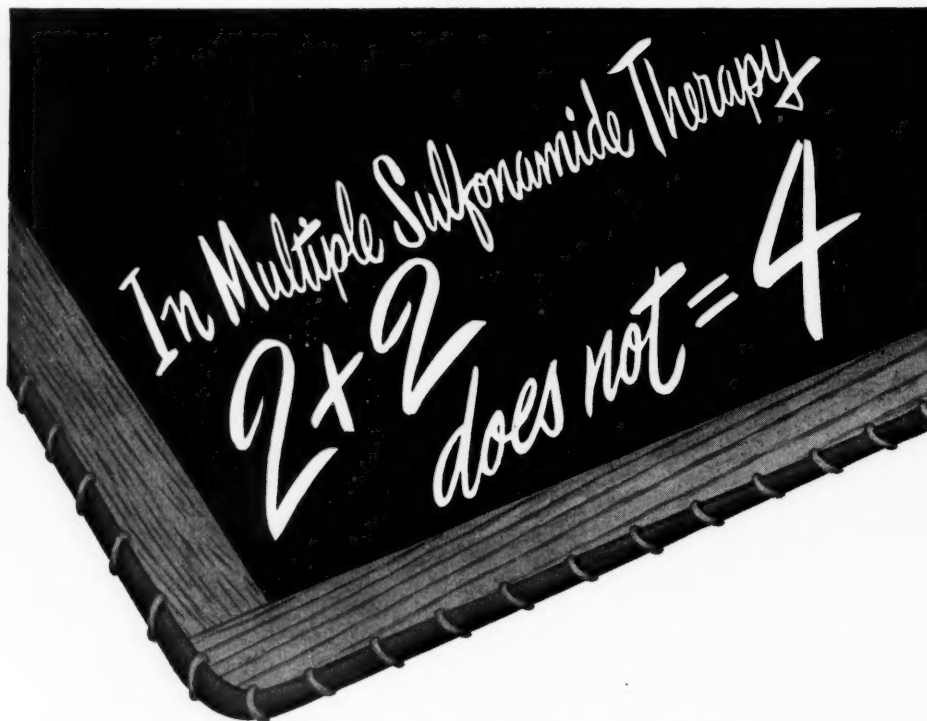 In Multiple Sulfonamide Therapy
2 + 2
does not = 4